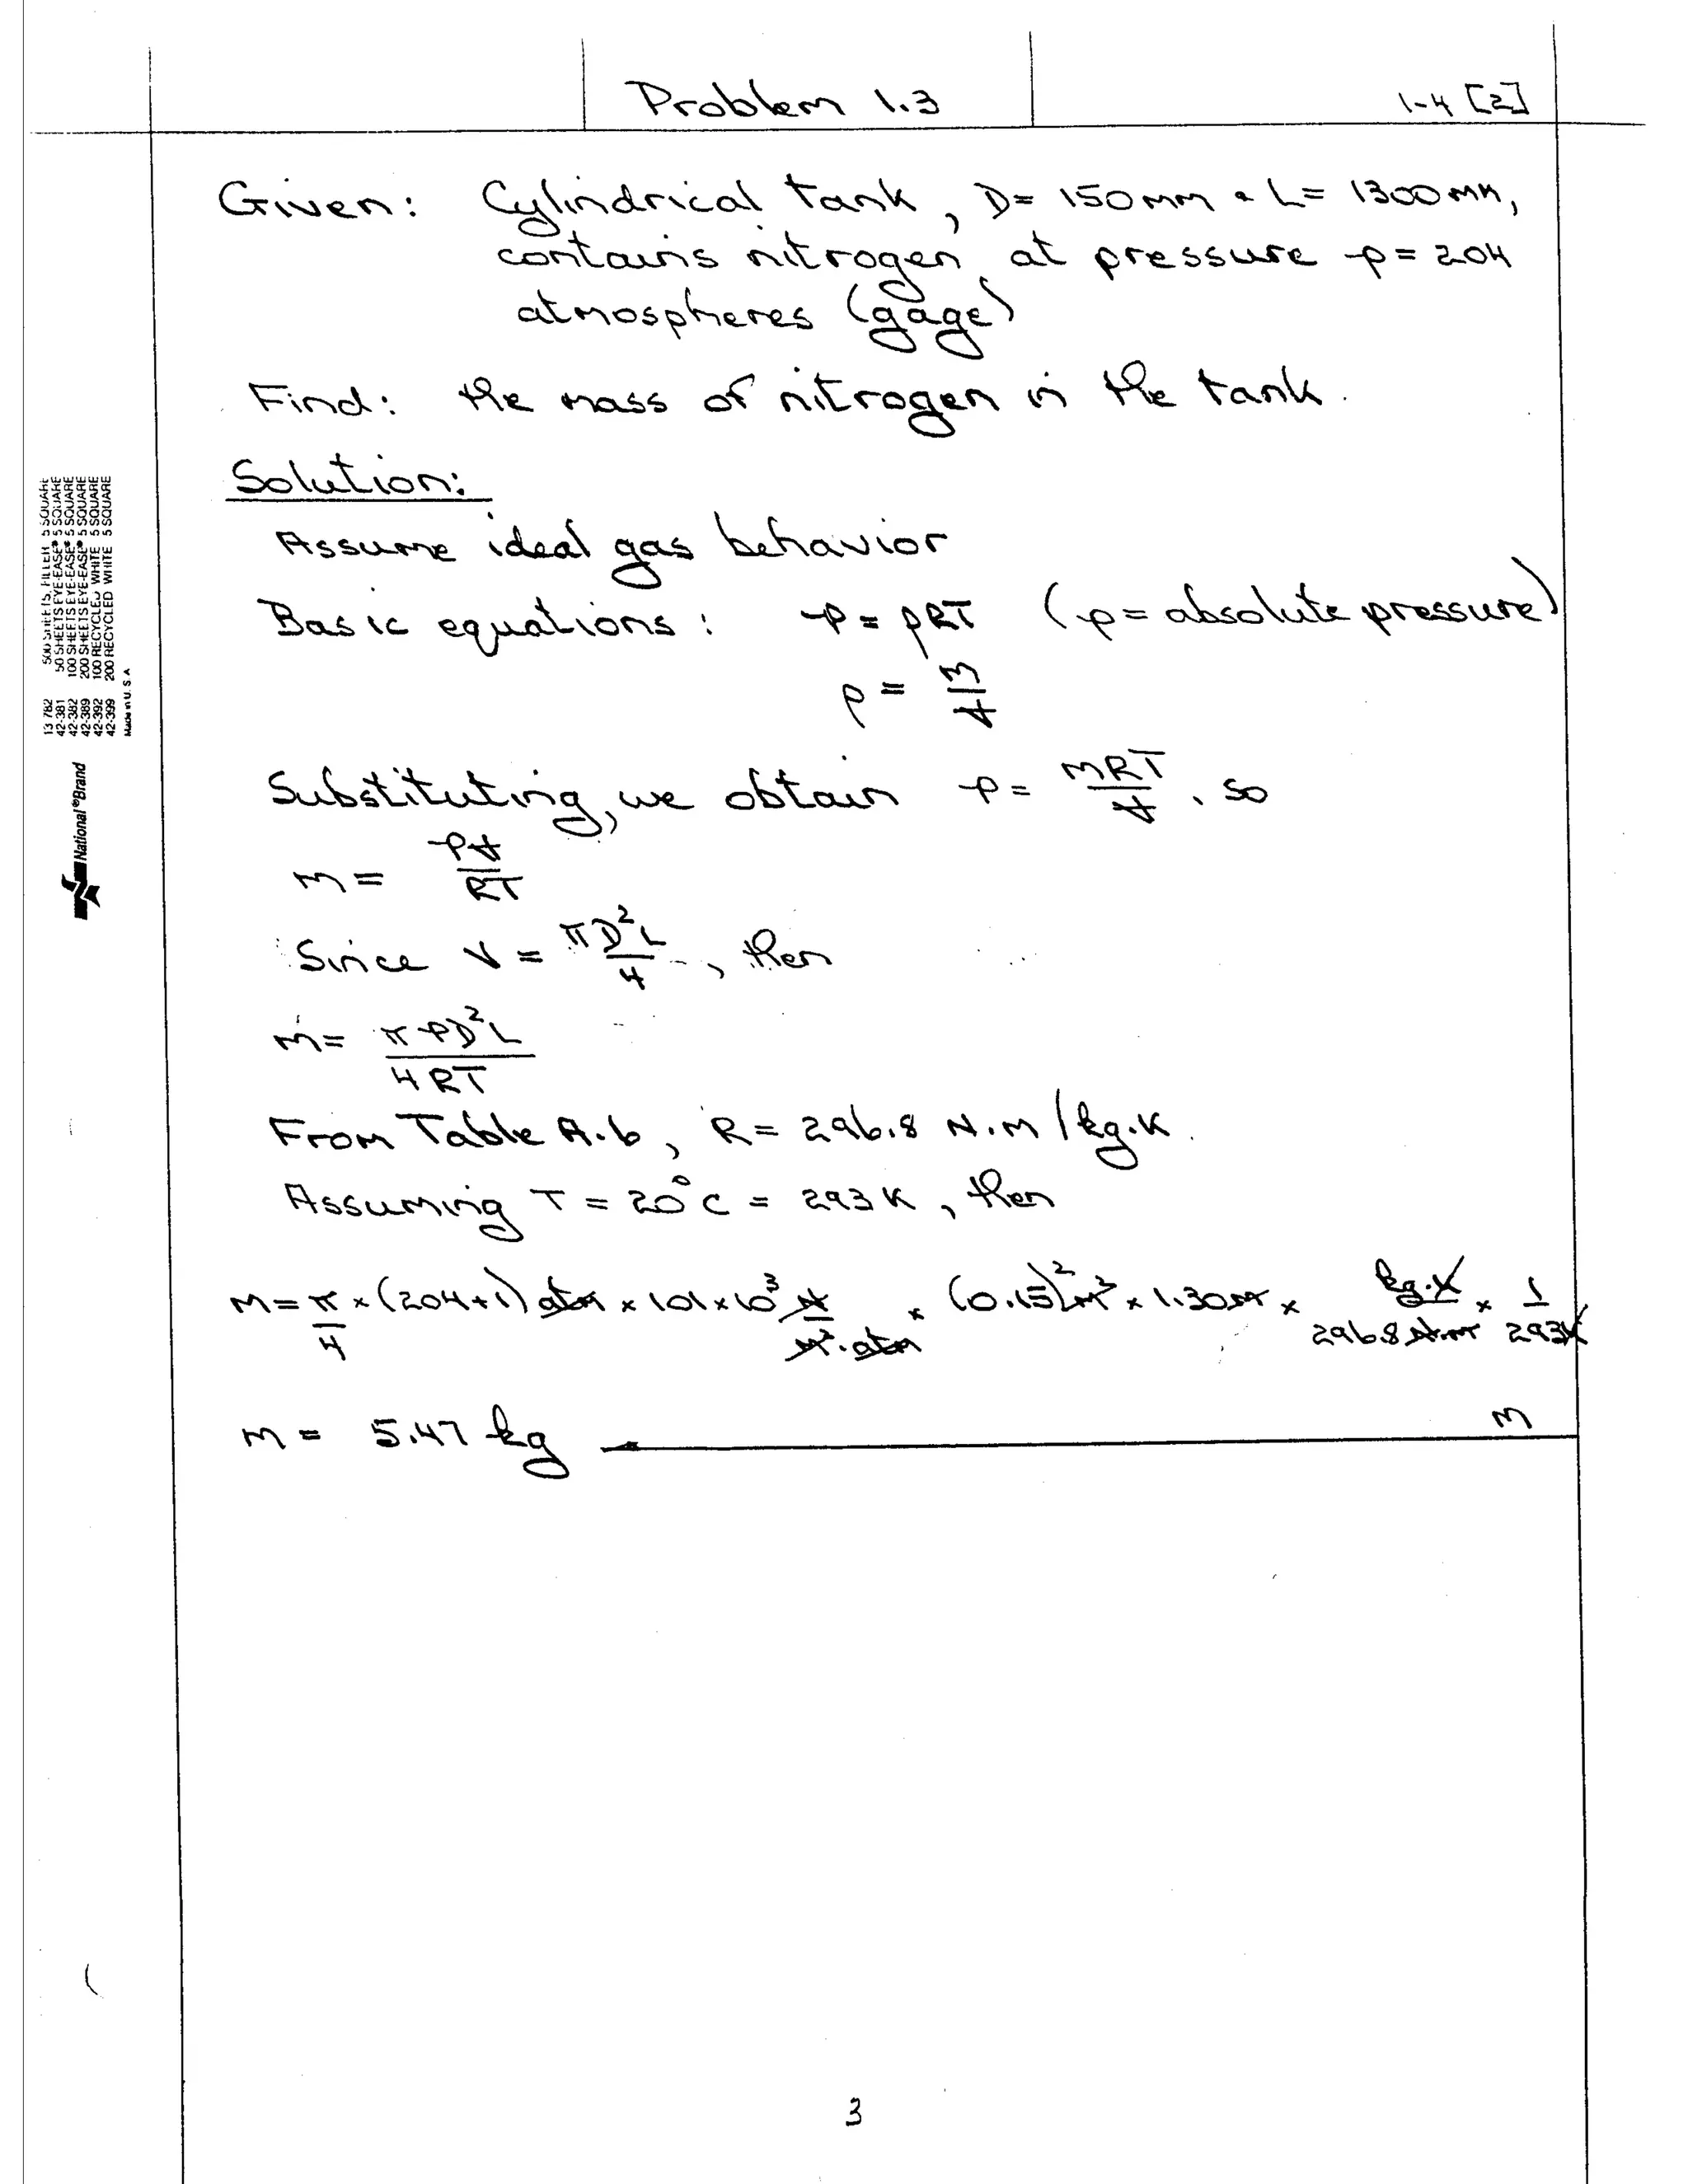 Problem 1.3
1-4 [2]
Given: Cylindrical tank, D= 150mm & L= 1300mm,
contains nitrogen at pressure p= 204
atmospheres (gage)
Find: the mass of nitrogen in the tank.
Solution:
Assume ideal gas behavior
Basic equations: p = ρRT (p = absolute pressure)
ρ = m/V
Substituting, we obtain p = mRT/V, so
m = pV/RT
Since V = πD²L/4, then
m= πpD²L/4RT
From Table A.6, R= 296.8 N.m/kg.K.
Assuming T = 20°C = 293K, then
m= π/4 × (204+1) atm × 101×10³ N/m².atm × (0.15)²m² × 1.30m × kg.K/296.8 N.m × 1/293K
m = 5.47 kg
m
3
13 782 500 SHEETS, FILLER 5 SQUARE
42-381 50 SHEETS EYE-EASE® 5 SQUARE
42-382 100 SHEETS EYE-EASE® 5 SQUARE
42-389 200 SHEETS EYE-EASE® 5 SQUARE
42-392 100 RECYCLED WHITE 5 SQUARE
42-399 200 RECYCLED WHITE 5 SQUARE
Made in U. S. A
National®Brand